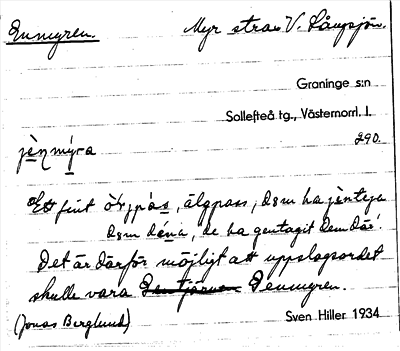 Enmyren. Myr strax V. Långsjön.
Graninge s:n
Sollefteå tg., Västernorrl. l.
290.
jènmýra
Ett fint , älgpass, dom ha jènteja
dom dána, de ha gentagit dem där.
Det är därför möjligt att uppslagsordet
skulle vara Genmyren.
(Jonas Berglund) Sven Hiller 1934